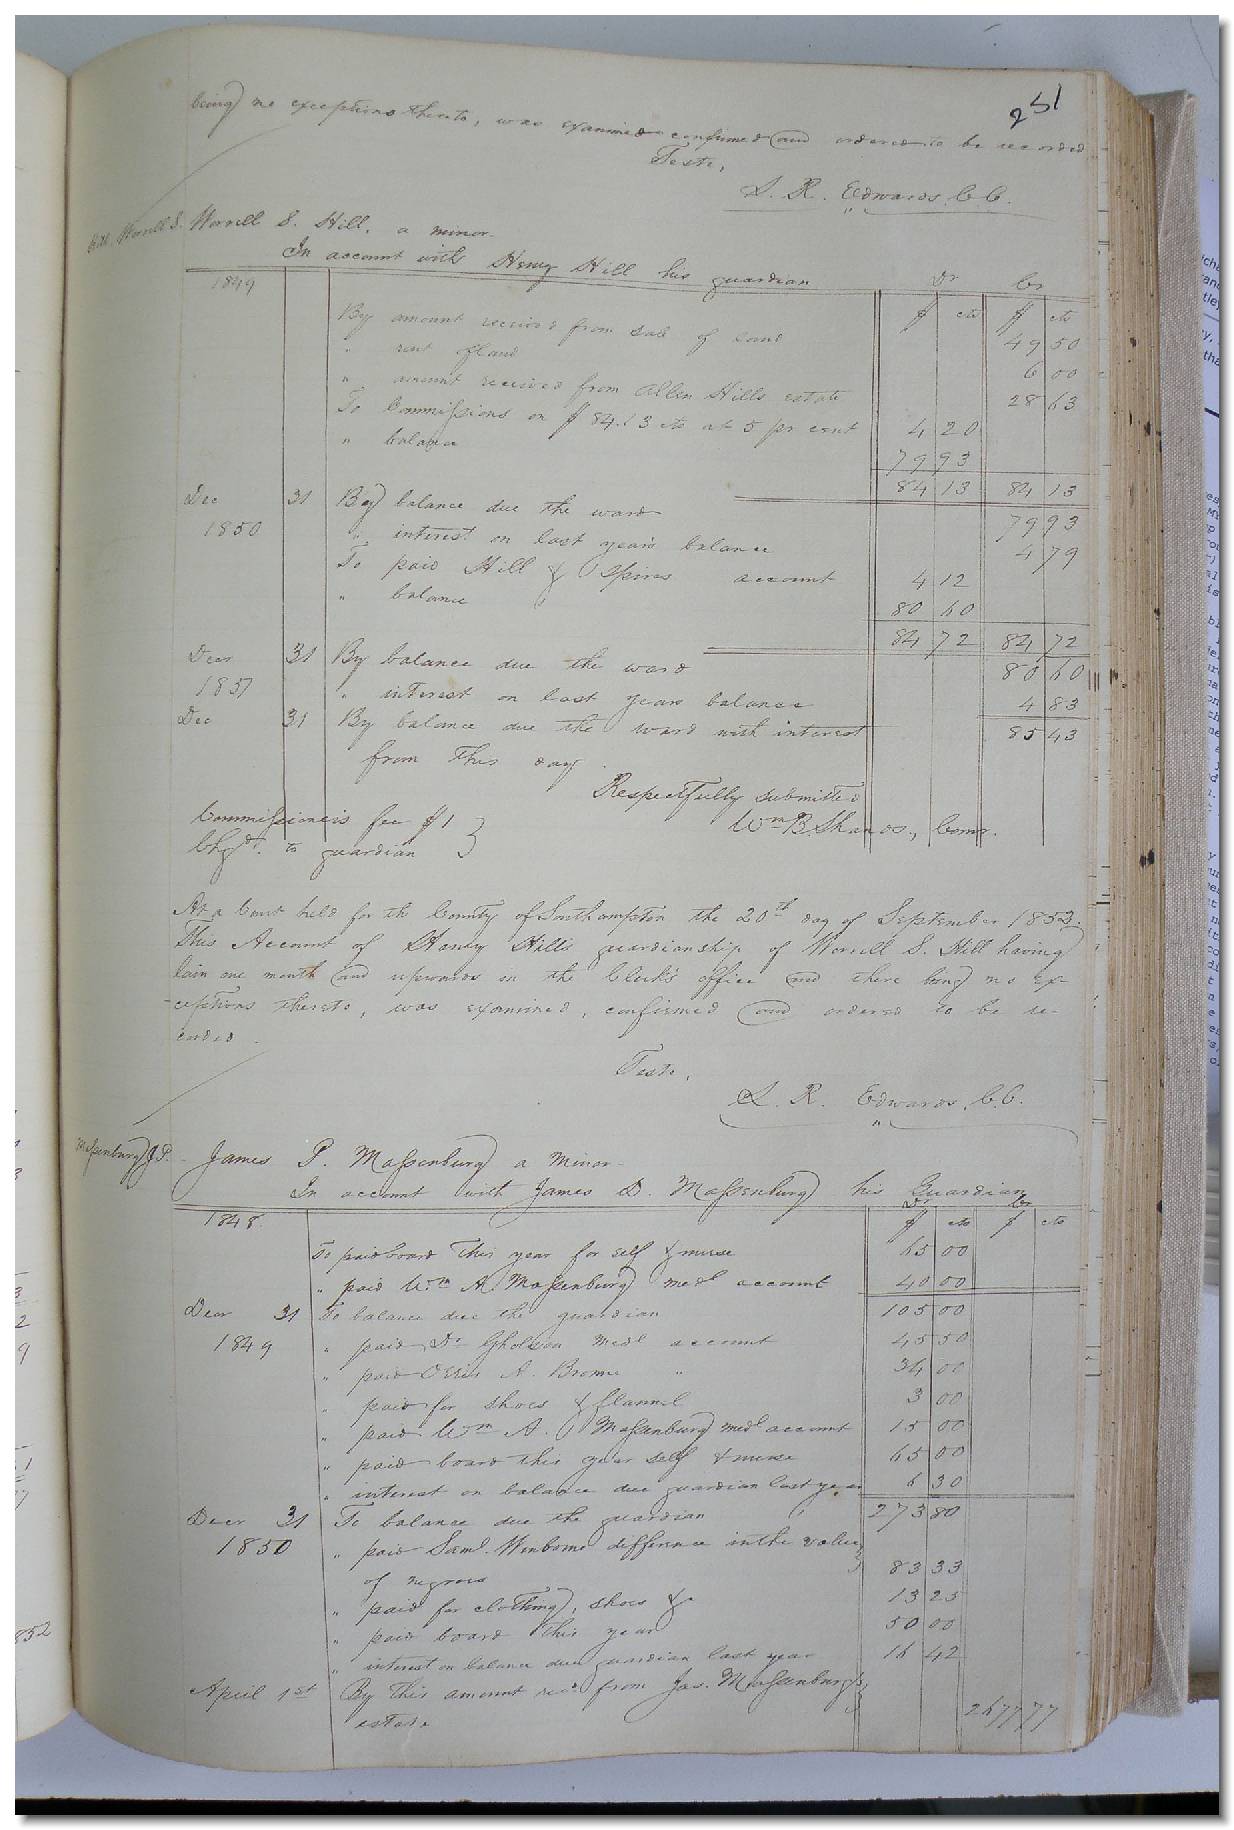 251
being no exceptions thereto, was examined confirmed and ordered to be recorded
Teste,
L. R. Edwards, C.C.
Hill, Worrell S. Worrell S. Hill, a minor.
In account with Henry Hill his guardian Dr Cr
1849 $ cts $ cts
By amount received from sale of land 49 50
" rent of land 6 00
" amount received from Allen Hills estate 28 63
To Commissions on $84.13 cts at 5 pr cent 4 20
" balance 79 93
84 13 84 13
Dec 31 By balance due the ward 79 93
1850 " interest on last years balance 4 79
To paid Hill & Spiers account 4 12
" balance 80 60
84 72 84 72
Decr 31 By balance due the ward 80 60
1851 " interest on last years balance 4 83
Dec 31 By balance due the ward with interest 85 43
from this day.
Respectfully submitted
Commissioners fee $1 Wm B. Shands, Comr.
Chgd. to guardian
At a Court held for the County of Southampton the 20th day of September 1852.
This Account of Henry Hills guardianship of Worrell S. Hill having
lain one month and upwards in the Clerk's office and there being no ex-
-ceptions thereto, was examined, confirmed and ordered to be re-
corded.
Teste,
L. R. Edwards, C.C.
Massenburg J. P. - James P. Massenburg a minor
In account with James D. Massenburg his Guardian
Dr Cr
1848 $ cts $ cts
To paid board this year for self & nurse 65 00
" paid Wm A. Massenburg medl account 40 00
Decr 31 To balance due the guardian 105 00
1849 " paid Dr Gholson medl account 45 50
" paid A. Browne " 34 00
" paid for shoes & flannel 3 00
" paid Wm A. Massenburg medl account 15 00
" paid board this year self & nurse 65 00
" interest on balance due guardian last year 6 30
Decr 31 To balance due the guardian 273 80
1850 " paid Saml. Winborne difference in the value
of negroes 83 33
" paid for clothing, shoes & 13 25
" paid board this year 50 00
" interest on balance due guardian last year 16 42
April 1st By this amount recd from Jas. Massenburg's
estate 2677 77